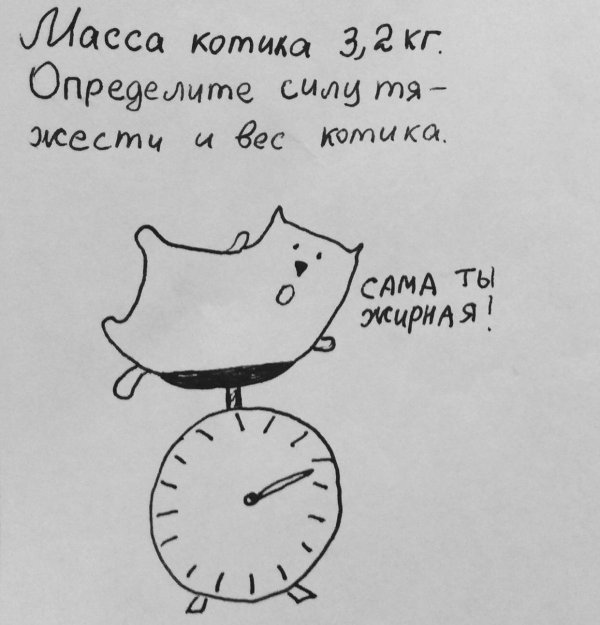 Масса котика 3,2 кг.
Определите силу тя-
жести и вес котика.
САМА ТЫ
ЖИРНАЯ!